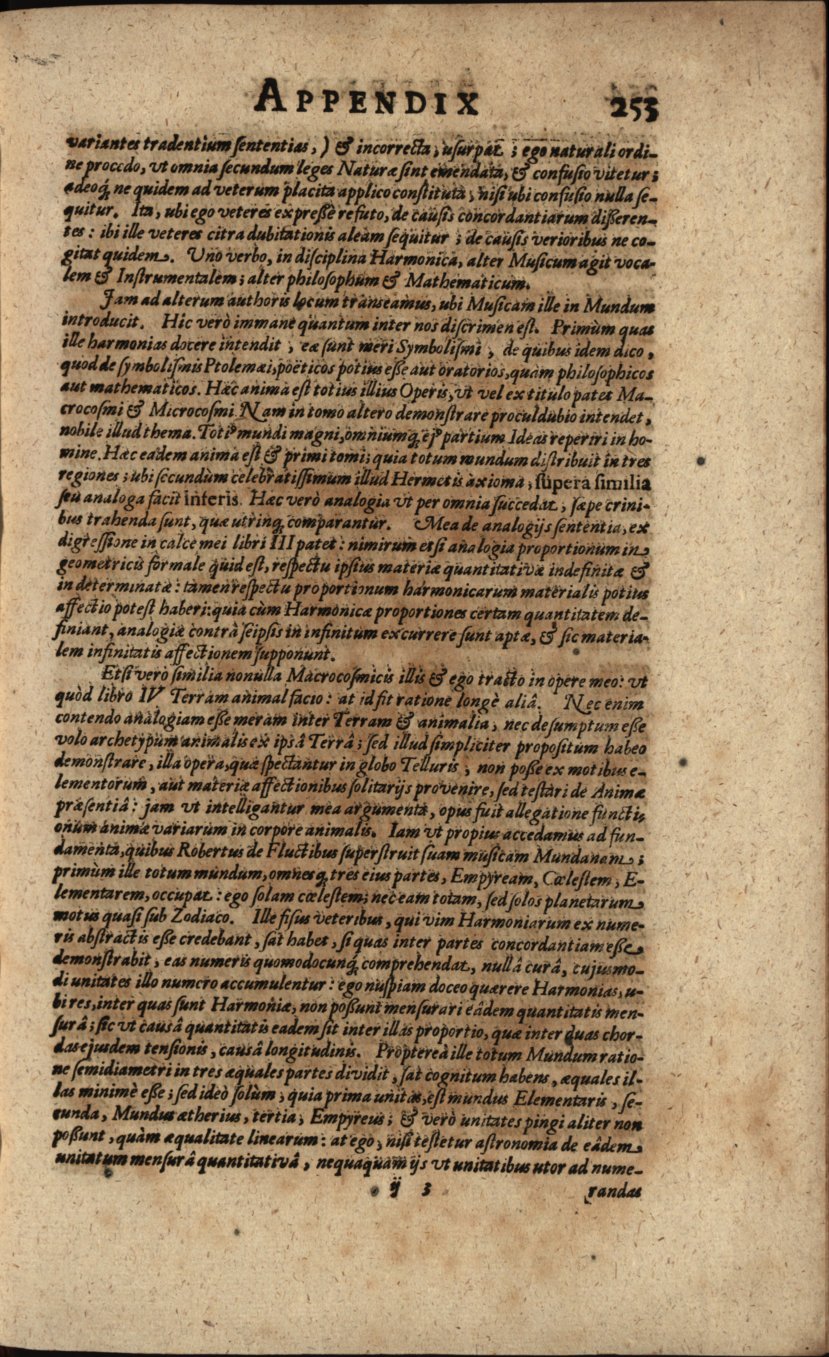 APPENDIX 253
variantes tradentium sententias, ) & incorrecta, usurpat ; ego naturali ordi-
ne procedo, vt omnia secundum leges Naturæ sint emendata, & confusio vitetur ;
adeoq́; ne quidem ad veterum placita applico constituta, nisi ubi confusio nulla se-
quitur. Ita, ubi ego veteres expreße refuto, de causis concordantiarum dißeren-
tes : ibi ille veteres citra dubitationis aleam sequitur ; de causis verioribus ne co-
gitat quidem. Uno verbo, in disciplina Harmonica, alter Musicum agit voca-
lem & Instrumentalem; alter philosophum & Mathematicum.
Jam ad alterum authoris locum transeamus, ubi Musicam ille in Mundum
introducit. Hic verò immane quantum inter nos discrimen est. Primùm quas
ille harmonias docere intendit, eæ sunt meri Symbolismi, de quibus idem dico,
quod de symbolismis Ptolemæi, poëticos potius eße aut oratorios, quàm philosophicos
aut mathematicos. Hæc anima est totius illius Operis, vt vel ex titulo patet Ma-
crocosmi & Microcosmi. Nam in tomo altero demonstrare proculdubio intendet,
nobile illud thema. Totiꝰ mundi magni, omniumq́; ejꝰ partium Ideas reperiri in ho-
mine. Hæc eadem anima est & primi tomi; quia totum mundum distribuit in tres
regiones ; ubi secundùm celebratissimum illud Hermetis axioma, supera similia
seu analoga facit inferis. Hæc verò analogia vt per omnia succedat, sæpe crini-
bus trahenda sunt, quæ utrinq́; comparantur. Mea de analogijs sententia, ex
digreßione in calce mei libri III patet : nimirum etsi analogia proportionum in
geometricis formale quid est, respectu ipsius materiæ quantitativæ indefinitæ &
indeterminatæ : tamen respectu proportionum harmonicarum materialis potius
affectio potest haberi: quia cùm Harmonicæ proportiones certam quantitatem de-
finiant, analogiæ contrà seipsis in infinitum excurrere sunt aptæ, & sic materia-
lem infinitatis affectionem supponunt.
Etsi verò similia nonulla Macrocosmicis illis & ego tracto in opere meo: ut
quòd libro IV Terram animal facio : at id fit ratione longè aliâ. Nec enim
contendo analogiam eße meram inter Terram & animalia, nec desumptum eße
volo archetypum animalis ex ipsâ Terrâ ; sed illud simpliciter propositum habeo
demonstrare, illa opera, quæ spectantur in globo Telluris, non poße ex motibus e-
lementorum, aut materiæ affectionibus solitarijs provenire, sed testari de Animæ
præsentiâ : jam vt intelligantur mea argumenta, opus fuit allegatione functi-
onum animæ variarum in corpore animalis. Iam vt propius accedamus ad fun-
damenta, quibus Robertus de Fluctibus superstruit suam musicam Mundanam ;
primùm ille totum mundum, omnesq́; tres eius partes, Empyream, Cœlestem, E-
lementarem, occupat : ego solam cœlestem; nec eam totam, sed solos planetarum
motus quasi sub Zodiaco. Ille fisus veteribus, qui vim Harmoniarum ex nume-
ris abstractis eße credebant, sat habet, si quas inter partes concordantiam eße
demonstrabit, eas numeris quomodocunq́; comprehendat, nullâ curâ, cujusmo-
di unitates illo numero accumulentur : ego nuspiam doceo quærere Harmonias, u-
bi res, inter quas sunt Harmoniæ, non poßunt mensurari eâdem quantitatis men-
surâ ; sic vt causâ quantitatis eadem sit inter illas proportio, quæ inter duas chor-
das ejusdem tensionis, causâ longitudinis. Proptereà ille totum Mundum ratio-
ne semidiametri in tres æquales partes dividit, sat cognitum habens, æquales il-
las minimè eße ; sed ideò solùm, quia prima unitas, est mundus Elementaris, se-
cunda, Mundus ætherius, tertia, Empyreus ; & verò unitates pingi aliter non
poßunt, quàm æqualitate linearum : at ego, nisi testetur astronomia de eâdem
unitatum mensurâ quantitativâ, nequaquàm ijs vt unitatibus utor ad nume-
ij 3 randas